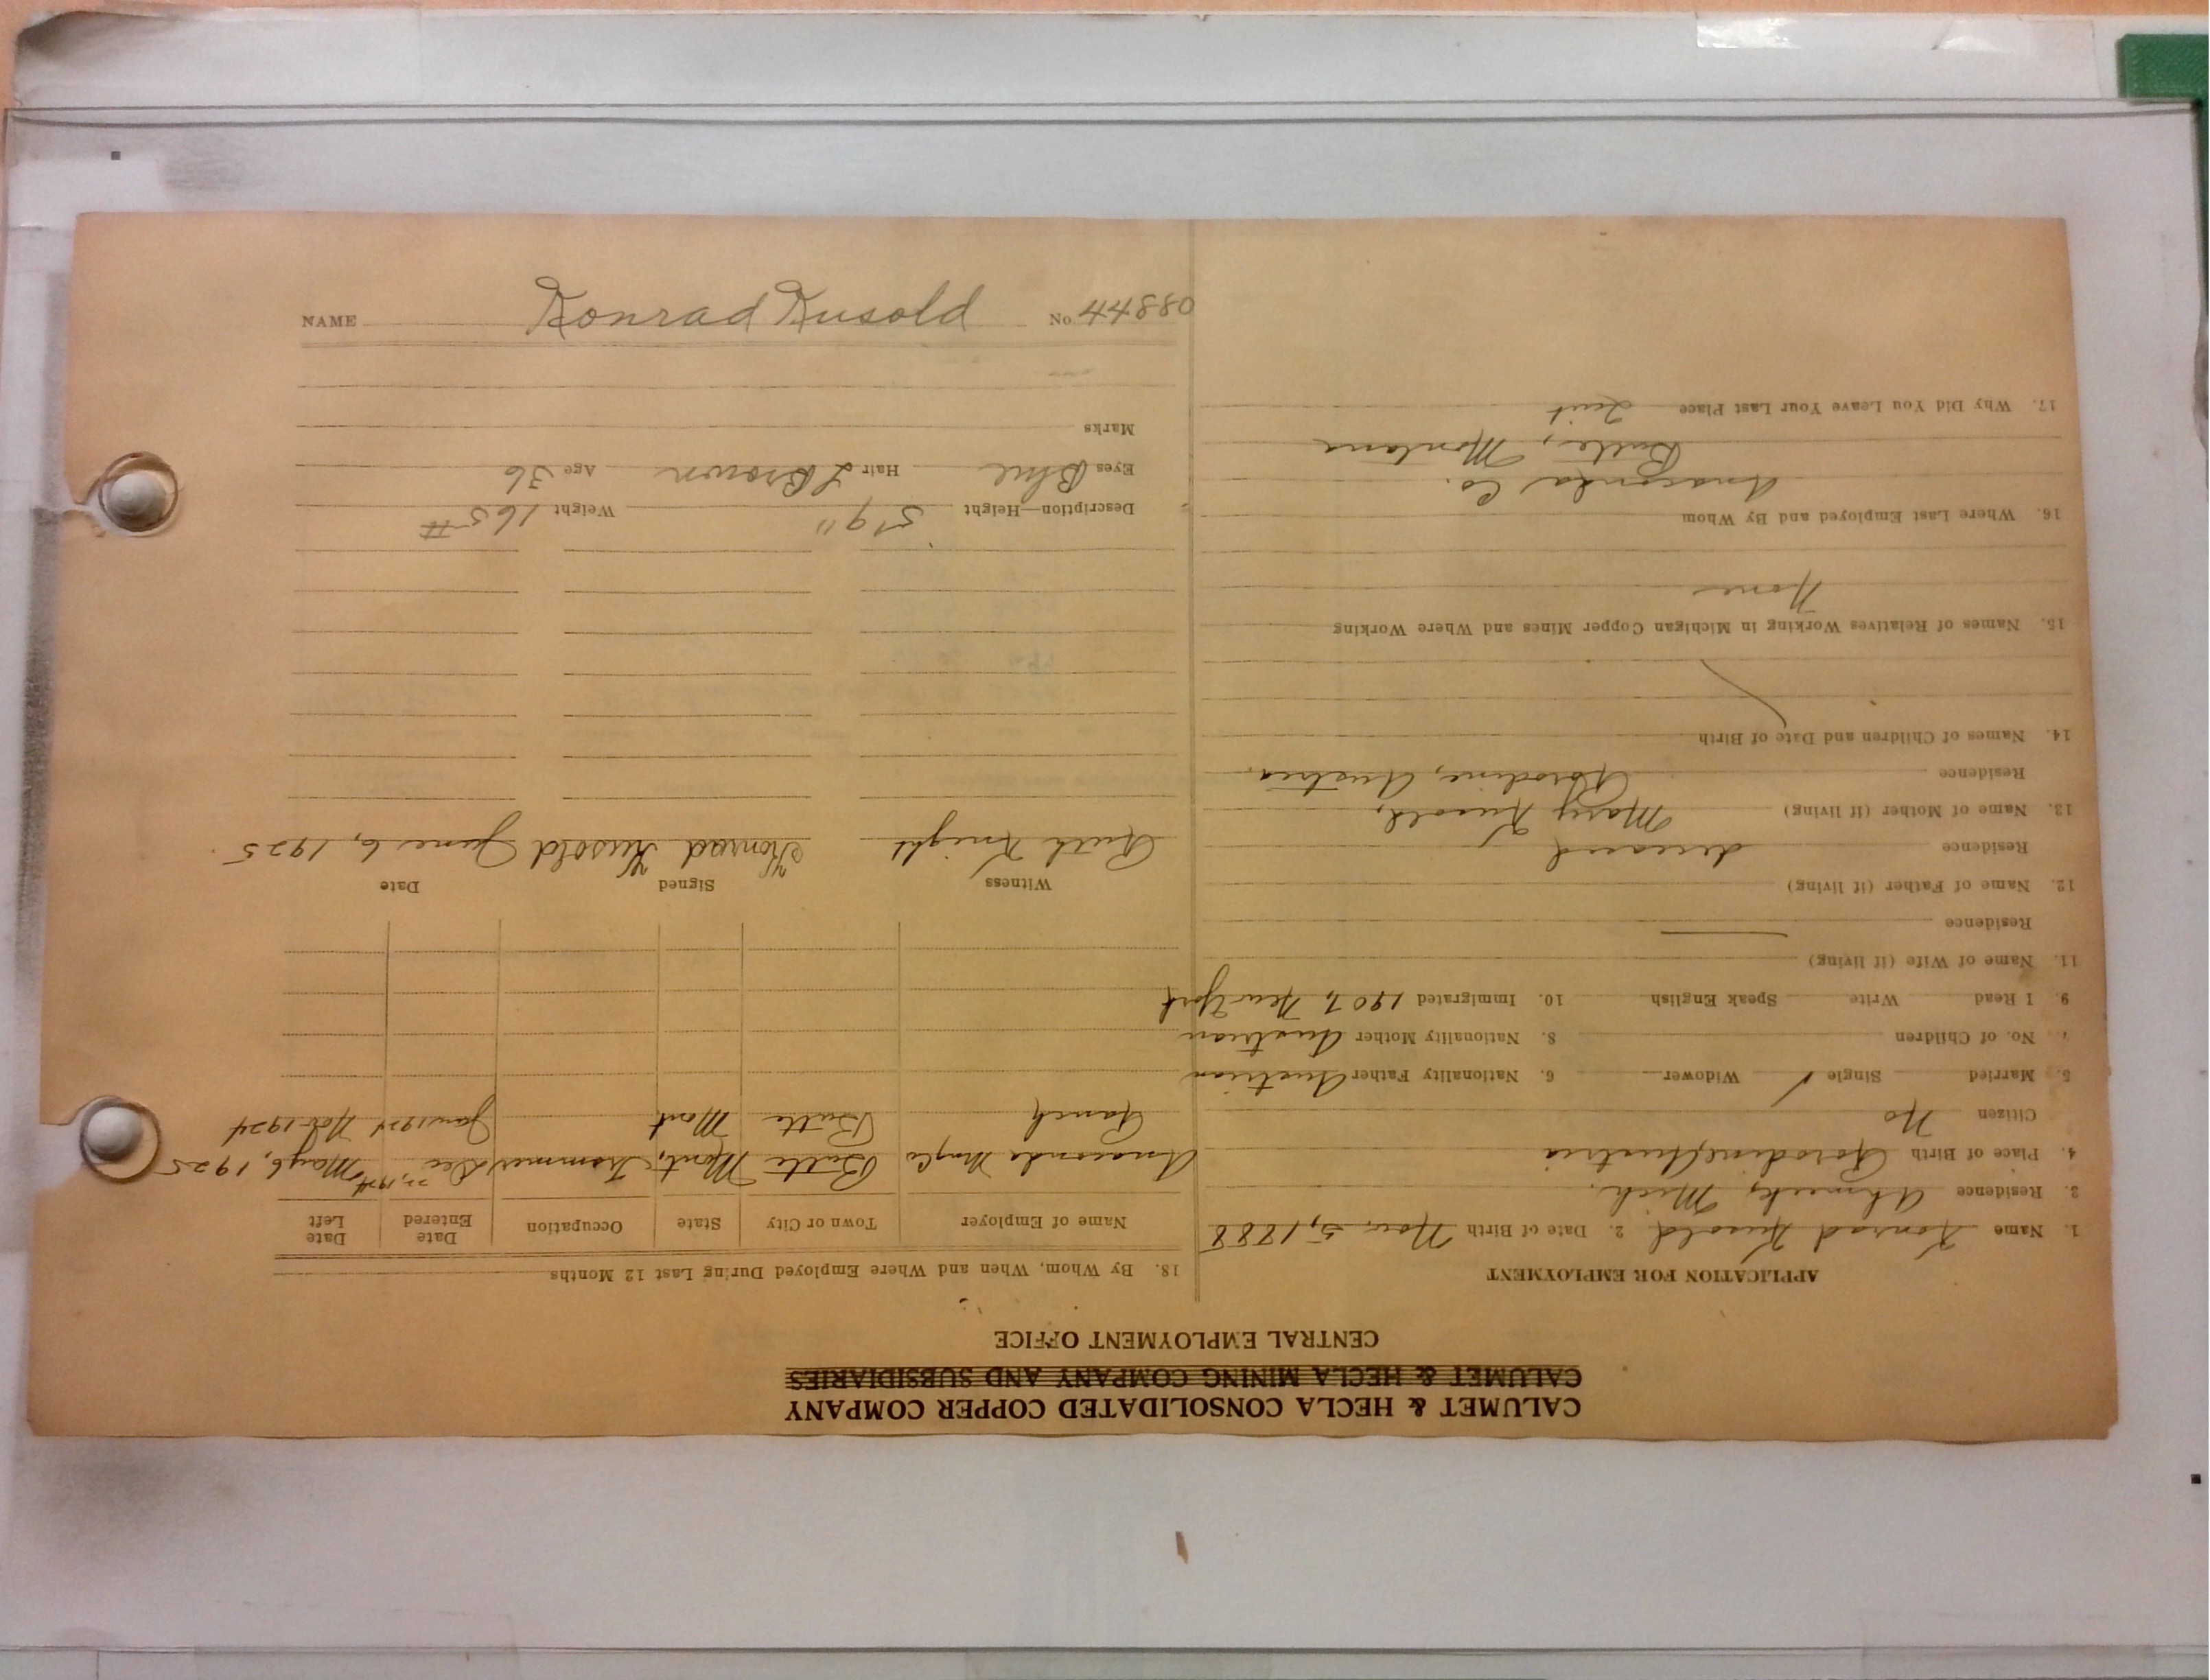 CALUMET & HECLA CONSOLIDATED COPPER COMPANY
CALUMET & HECLA MINING COMPANY AND SUBSIDIARIES
CENTRAL EMPLOYMENT OFFICE
APPLICATION FOR EMPLOYMENT
1. Name Konrad Kusold 2. Date of Birth Nov. 5, 1888
3. Residence Ahmeek, Mich.
4. Place of Birth Austria
Citizen no
5. Married Single ✓ Widower 6. Nationality Father Austrian
7. No. of Children 8. Nationality Mother Austrian
9. I Read Write Speak English 10. Immigrated 1907, New York
11. Name of Wife (if living)
Residence
12. Name of Father (if living)
Residence deceased
13. Name of Mother (if living) Mary Kusold,
Residence Austria
14. Names of Children and Date of Birth
15. Names of Relatives Working in Michigan Copper Mines and Where Working
None
16. Where Last Employed and By Whom
Anaconda Co.
Butte, Montana
17. Why Did You Leave Your Last Place Quit
18. By Whom, When and Where Employed During Last 12 Months
Name of Employer Town or City State Occupation Date Entered Date Left
Anaconda Mng Co Butte Mont, Trammer Dec 22, 1924 May 6, 1925
Ranch Butte Mont Jan. 1924 Nov. 1924
Witness Signed Date
Ruth Knight Konrad Kusold June 6, 1925
Description—Height 5'9" Weight 165#
Eyes Blue Hair L Brown Age 36
Marks
NAME Konrad Kusold No 44880